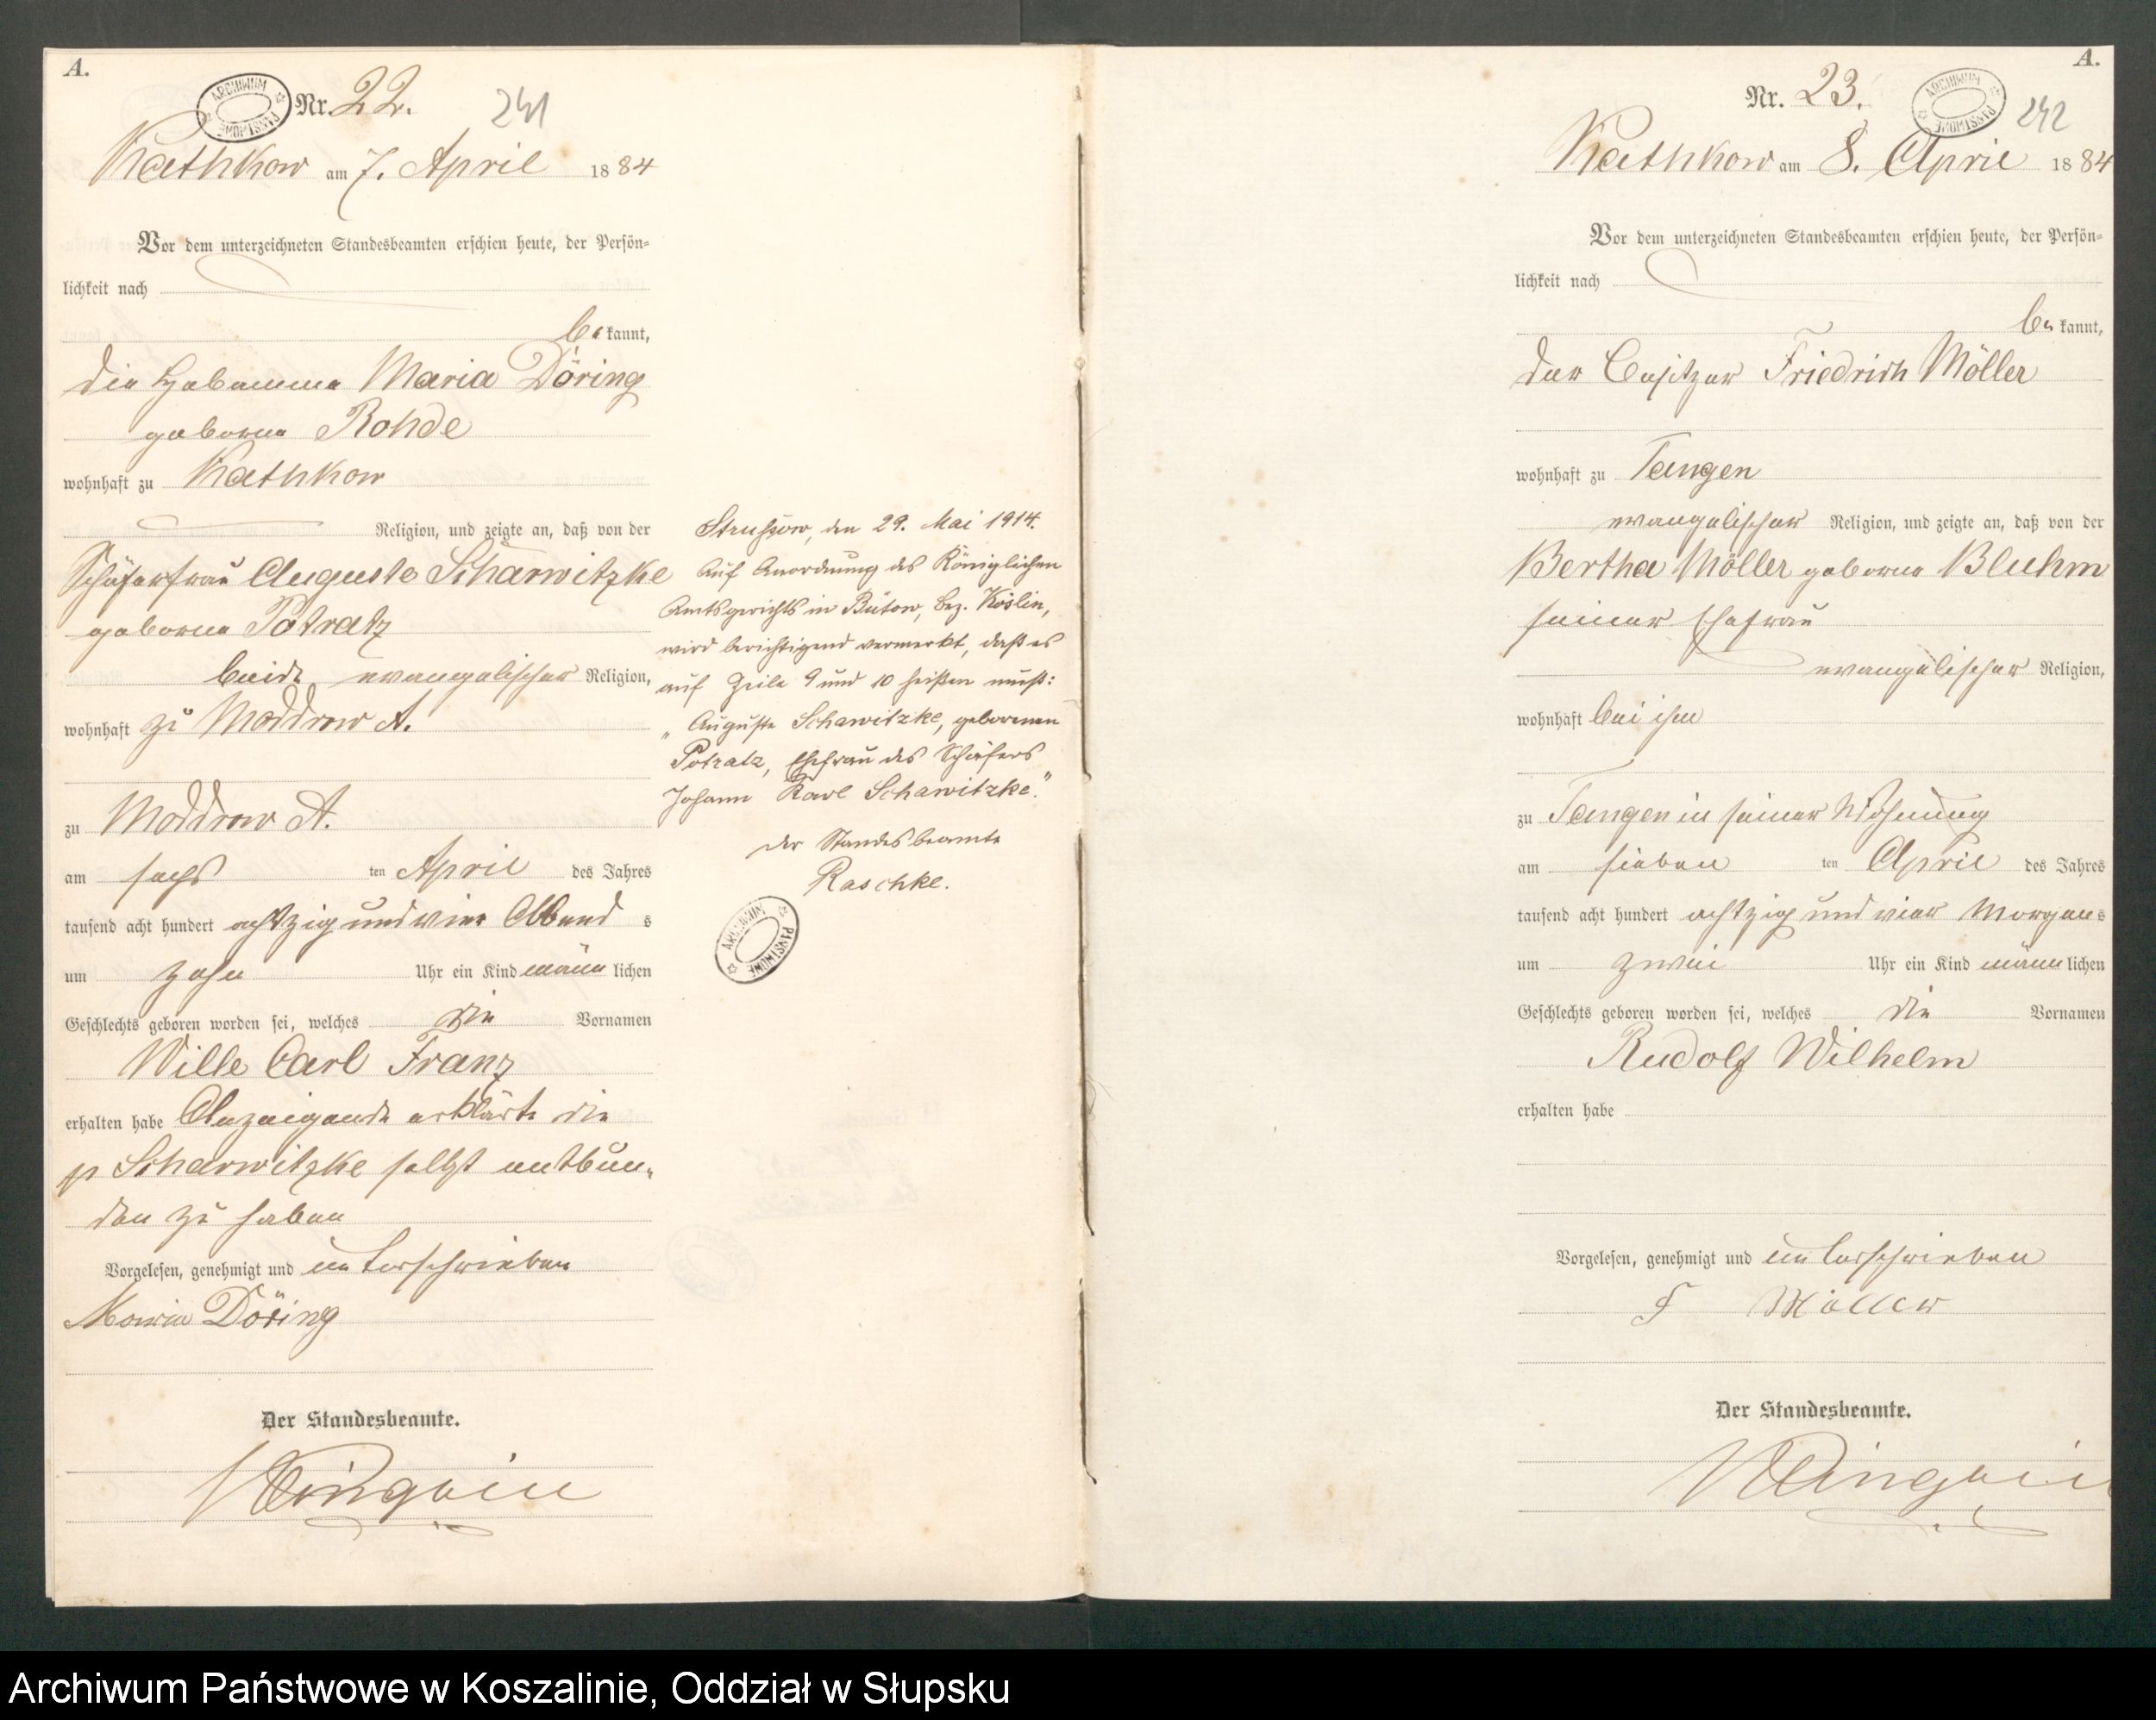 A.
ARCHIWUM PAŃSTWOWE
Nr. 22.
241
Kathkow am 7. April 1884
Vor dem unterzeichneten Standesbeamten erschien heute, der Persön-
lichkeit nach
bekannt,
die Hebamme Maria Döring
geborne Rohde
wohnhaft zu Kathkow
Religion, und zeigte an, daß von der
Schäferfrau Auguste Scharwitzke
geborne Potratz
beide evangelischer Religion,
wohnhaft zu Moddrow A.
zu Moddrow A.
am sechs ten April des Jahres
tausend acht hundert achtzig und vier Abends
um zehn Uhr ein Kind männlichen
Geschlechts geboren worden sei, welches die Vornamen
Wille Carl Franz
erhalten habe Anzeigende erklärte die
p Scharwitzke selbst entbun-
den zu haben
Vorgelesen, genehmigt und unterschrieben
Maria Döring
Der Standesbeamte.
Strussow, den 29. Mai 1914.
Auf Anordnung des Königlichen
Amtsgerichts in Bütow, Bez. Köslin,
wird berichtigend vermerkt, daß es
auf Zeile 9 und 10 heißen muß:
„Auguste Schawitzke, geborenen
Potratz, Ehefrau des Schäfers
Johann Karl Schawitzke."
Der Standesbeamte
Raschke.
ARCHIWUM PAŃSTWOWE
A.
Nr. 23.
ARCHIWUM PAŃSTWOWE
242
Kathkow am 8. April 1884
Vor dem unterzeichneten Standesbeamten erschien heute, der Persön-
lichkeit nach
bekannt,
der Besitzer Friedrich Möller
wohnhaft zu Tangen
evangelischer Religion, und zeigte an, daß von der
Bertha Möller geborne Bluhm
seiner Ehefrau
evangelischer Religion,
wohnhaft bei ihm
zu Tangen in seiner Wohnung
am sieben ten April des Jahres
tausend acht hundert achtzig und vier Morgens
um zwei Uhr ein Kind männlichen
Geschlechts geboren worden sei, welches die Vornamen
Rudolf Wilhelm
erhalten habe
Vorgelesen, genehmigt und unterschrieben
F Möller
Der Standesbeamte.
Archiwum Państwowe w Koszalinie, Oddział w Słupsku